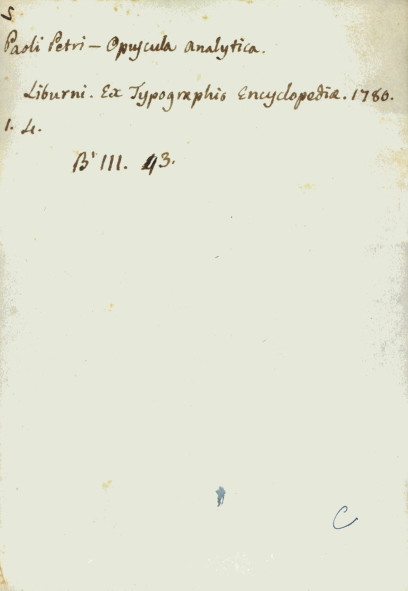 S
Paoli Petri – Opuscula Analytica.
Liburni. Ex Typographio Encyclopediæ. 1780.
1. 4.
B' III. 43.
C